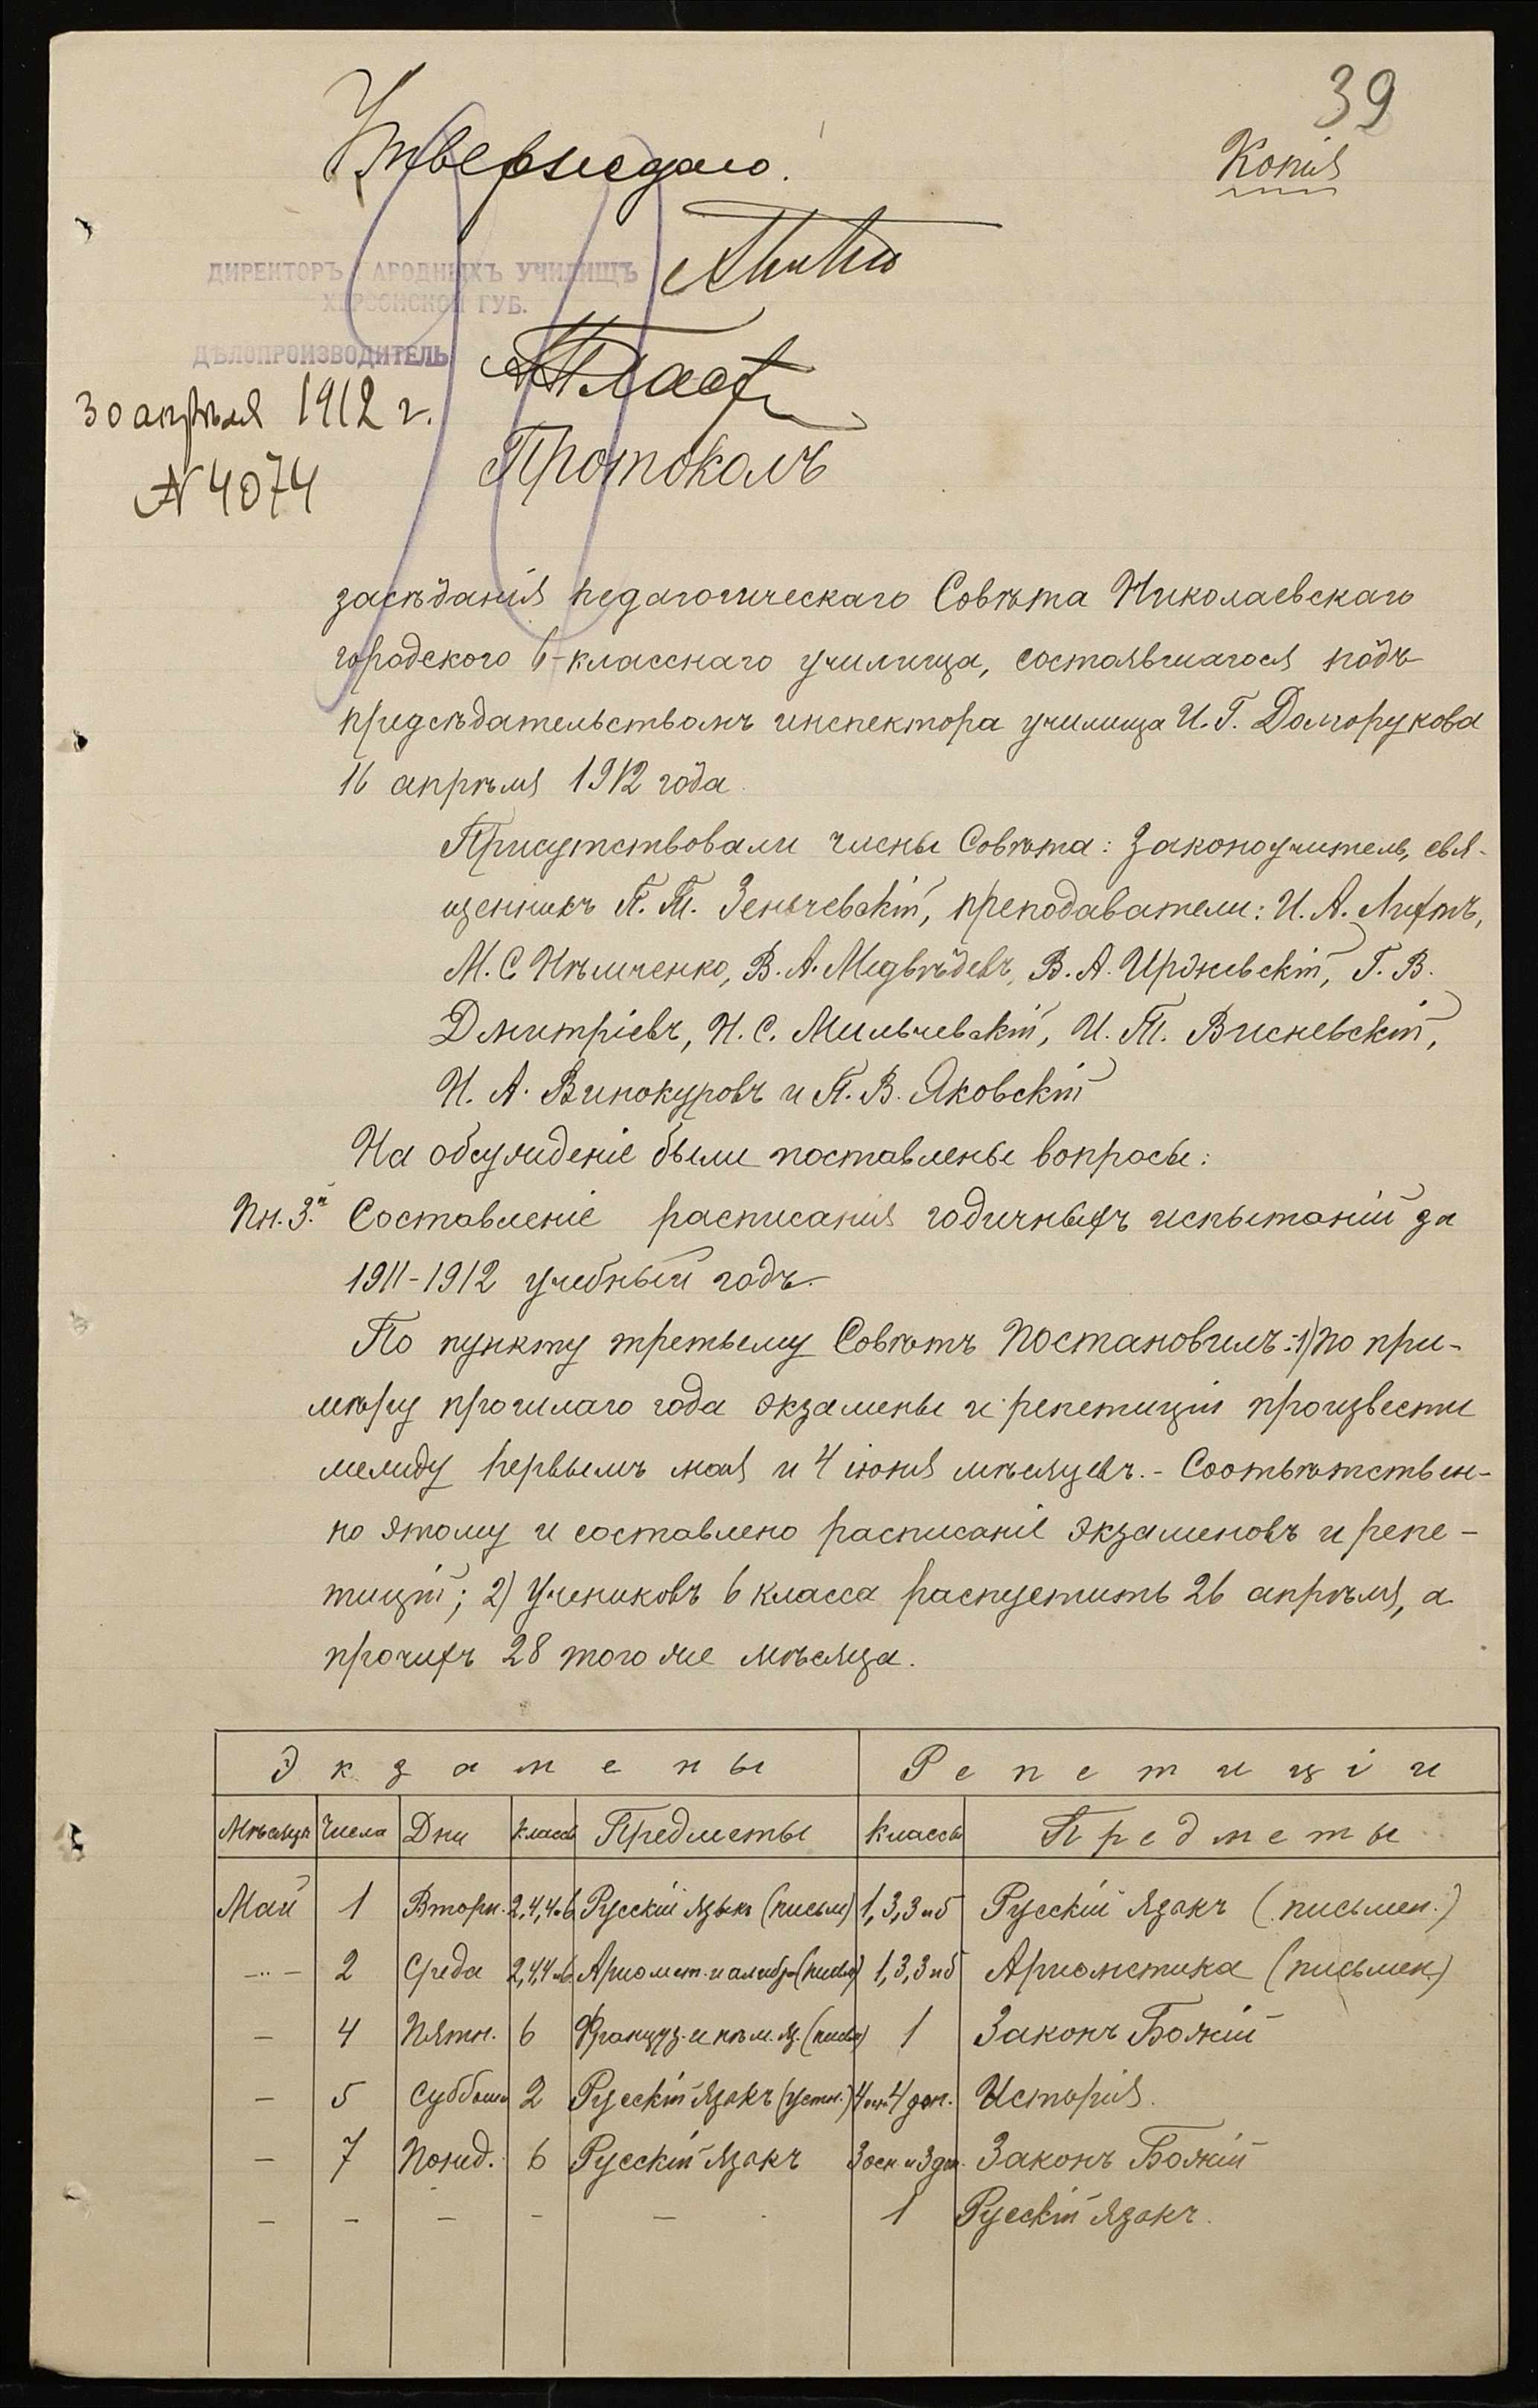 39
Копія
Утверждаю.
ДИРЕКТОРЪ НАРОДНЫХЪ УЧИЛИЩЪ
ХЕРСОНСКОЙ ГУБ.
ДѢЛОПРОИЗВОДИТЕЛЬ
30 апрѣля 1912 г.
№ 4074
Протоколъ
засѣданія педагогическаго Совѣта Николаевскаго
городского 6-класснаго училища, состоявшагося подъ
предсѣдательствомъ инспектора училища И. Г. Долгорукова
16 апрѣля 1912 года.
Присутствовали члены Совѣта: Законоучитель, свя-
щенникъ П. П. Зенычевскій, преподаватели: И. А. Лифтъ,
М. С. Нѣмченко, В. А. Медвѣдевъ, В. А. Иржевскій, Г. В.
Дмитріевъ, Н. С. Мильчевскій, И. П. Висневскій,
Н. А. Винокуровъ и П. В. Яковскій
На обсужденіе были поставлены вопросы:
Пн. 3.й Составленіе расписанія годичныхъ испытаній за
1911-1912 учебный годъ.
По пункту третьему Совѣтъ Постановилъ: 1) по при-
мѣру прошлаго года экзамены и репетиціи произвести
между первымъ мая и 4 іюня мѣсяцевъ. - Соотвѣтствен-
но этому и составлено расписаніе экзаменовъ и репе-
тицій; 2) Учениковъ 6 класса распустить 26 апрѣля, а
прочихъ 28 того же мѣсяца.
Экзамены Репетиціи
Мѣсяцы Числа Дни Классы Предметы Классы Предметы
Май 1 Вторн. 2,4,4 и 6 Русскій языкъ (письм) 1,3,3 и 5 Русскій языкъ (письмен.)
-"- 2 Среда 2,4,4 и 6 Ариѳмет. и алгебр. (письм) 1,3,3 и 5 Ариѳметика (письмен)
- 4 Пятн. 6 Француз. и нѣм. яз. (письм) 1 Законъ Божій
- 5 Суббота 2 Русскій языкъ (устн.) 4 осн. 4 доп. Исторія.
- 7 Понед. 6 Русскій языкъ 3 осн. и 3 доп. Законъ Божій
- - - - - 1 Русскій языкъ.